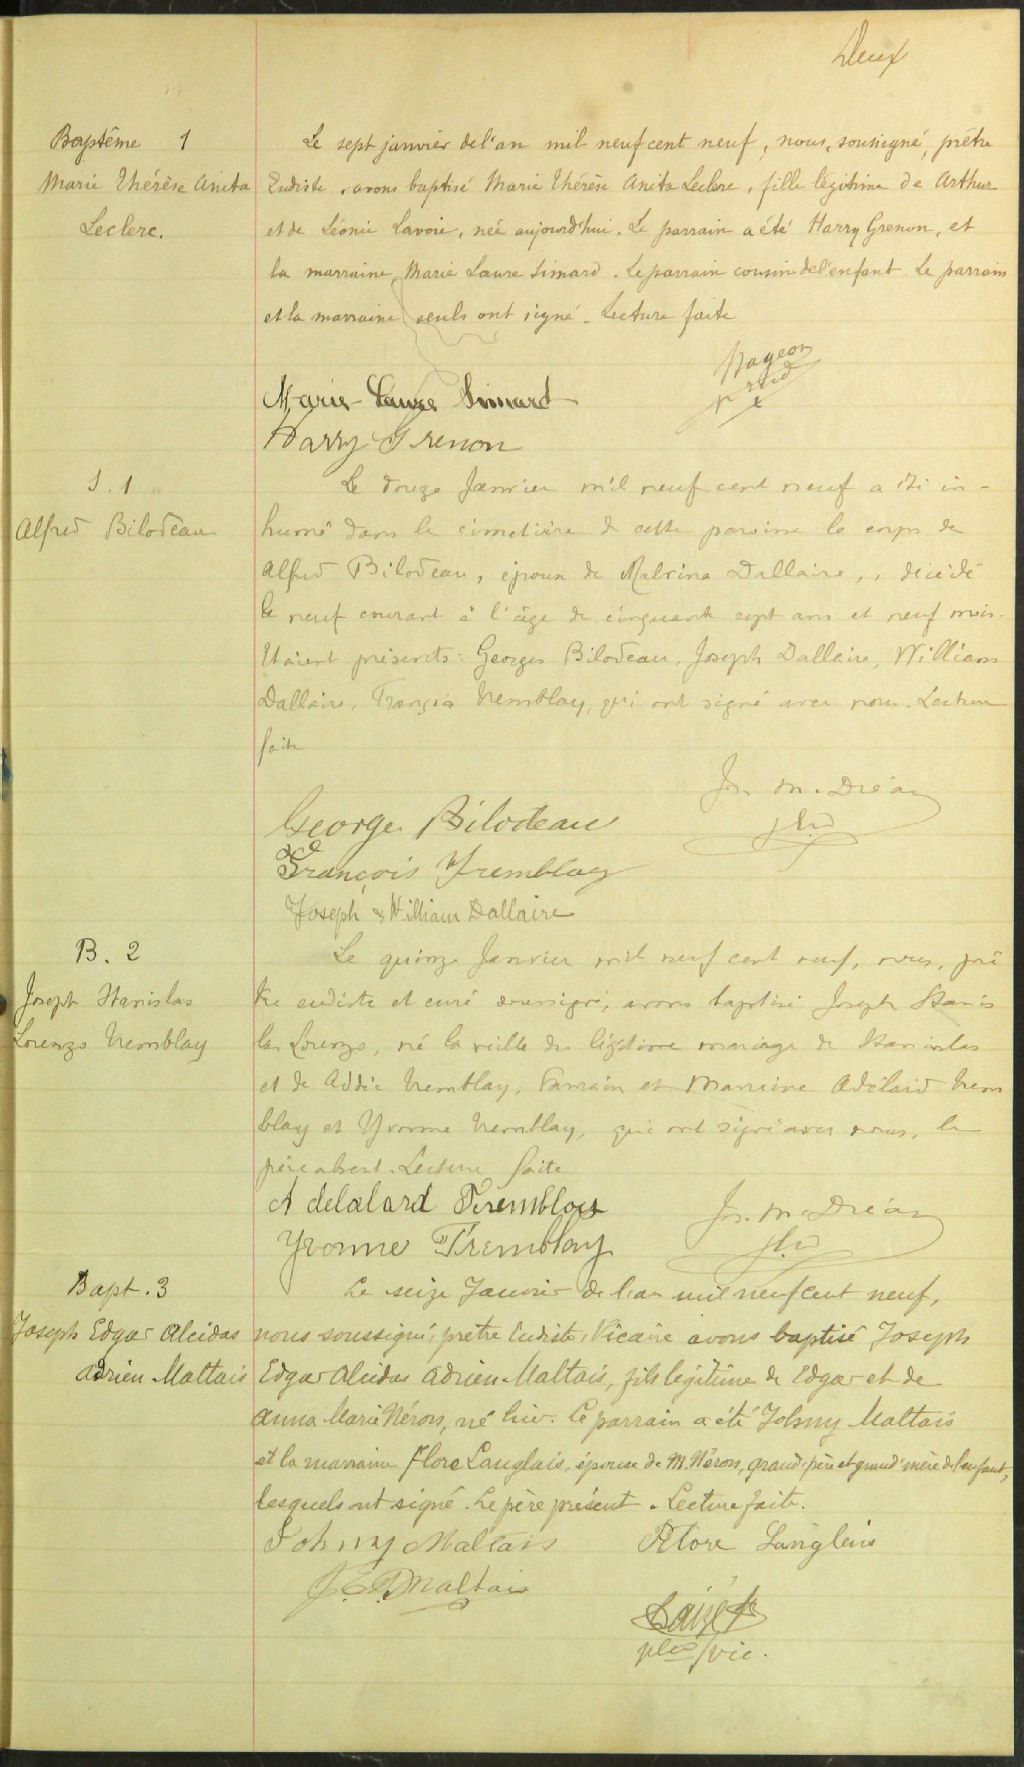 Deux
Baptême 1
Marie Thérèse Anita
Leclerc.
Le sept janvier de l'an mil neuf cent neuf, nous, soussigné, prêtre
Eudiste, avons baptisé Marie Thérèse Anita Leclerc, fille légitime de Arthur
et de Léonie Lavoie, née aujourd'hui. Le parrain a été Harry Grenon, et
la marraine, Marie Laure Simard. Le parrain cousin de l'enfant. Le parrain
et la marraine seuls ont signé. Lecture faite
Marie-Laure Simard
Harry Grenon
S. 1
Alfred Bilodeau
Le douze Janvier mil neuf cent neuf a été in-
humé dans le cimetière de cette paroisse le corps de
Alfred Bilodeau, époux de Malvina Dallaire, , décédé
le neuf courant à l'âge de cinquante sept ans et neuf mois.
Etaient présents: Georges Bilodeau, Joseph Dallaire, William
Dallaire, François Tremblay, qui ont signé avec nous. Lecture
faite
Jos. M. Dréan
George Bilodeau
François Tremblay
Joseph & William Dallaire
B. 2
Joseph Stanislas
Lorenzo Tremblay
Le quinze Janvier mil neuf cent neuf, nous, prê
tre eudiste et curé soussigné, avons baptisé Joseph Stanis
las Lorenzo, né la veille du légitime mariage de Stanislas
et de Addie Tremblay. Parrain et Marraine Adélard Trem
blay et Yvonne Tremblay, qui ont signé avec nous, le
père absent. Lecture faite
Adelalard Tremblay
Yvonne Tremblay
Jos. M. Dréan
Bapt. 3
Joseph Edgar Alcidas
Adrien Maltais
Le seize Janvier de l'an mil neuf cent neuf,
nous soussigné, prêtre Eudiste, Vicaire avons baptisé Joseph
Edgar Alcidas Adrien Maltais, fils légitime de Edgar et de
Anna Marie Néron, né hier. Le parrain a été Johnny Maltais
et la marraine Flore Langlais, épouse de M. Néron, grand'père et grand'mère de l'enfant,
lesquels ont signé. Le père présent. Lecture faite.
Johnny Maltais
Flore Langlais
J. E. Maltais
vic.